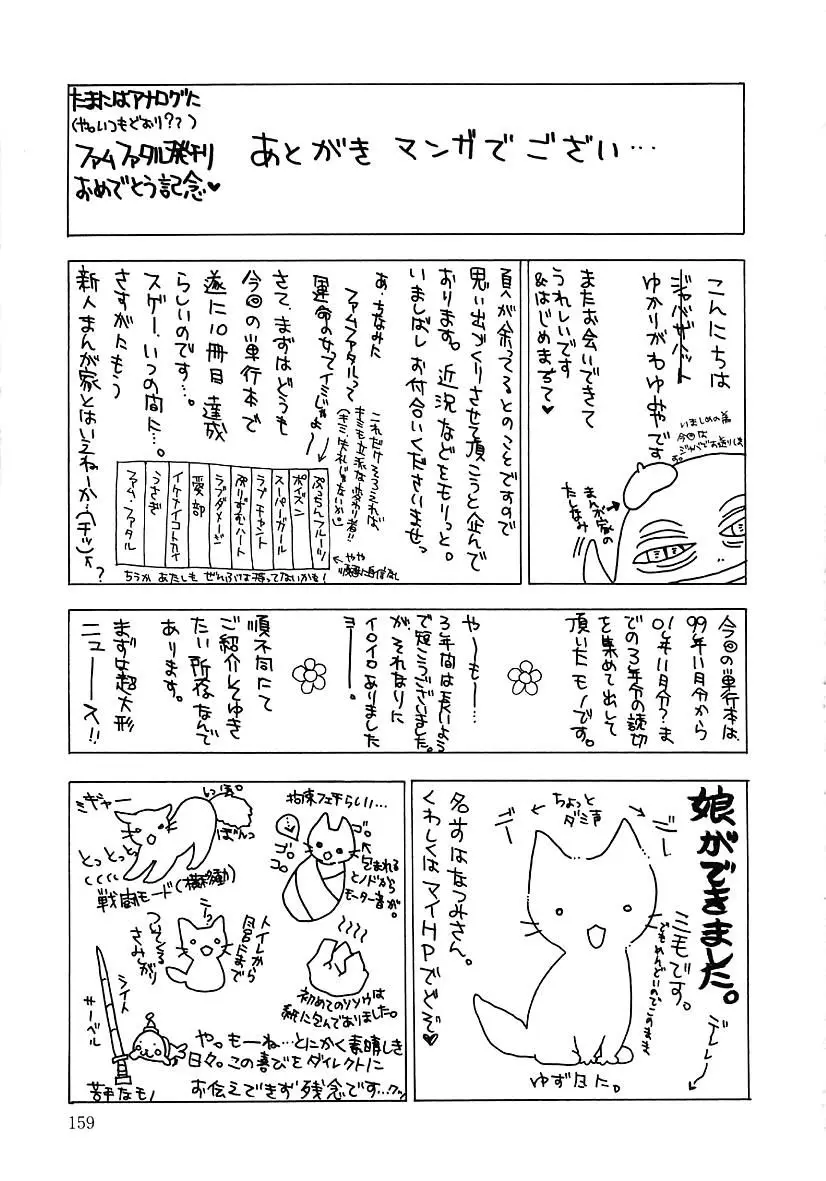 たまにはアナログに
(や。いつもどおり??)
ファム ファタル発刊
おめでとう記念♥
あとがき マンガで ござい…
こんにちは
ジャバザハット
ゆかりがわゆみやです
いましめの為
今回は
ジャバでお送りします。
またお会いできて
うれしいです
&はじめまちて♥
まんが家の
たしなみ
頁が余ってるとのことですので
思い出づくりさせて頂こうと企んで
おります。近況などをもりっと。
いましばし お付合いくださいませっ
あ、ちなみに
ファムファタルって
運命の女ってイミじゃよ〜
さて、まずはどうも
今回の単行本で
遂に10冊目 達成
らしいのです…。
スゲー、いつの間に…。
さすがにもう
新人まんが家とはいえねーか(チッ)
これだけそろえれば、
キミも立派な変わり者!!
ぷっちんフルーツ
ポイズン
スーパーガール
ラブ チャント
ぷりずむハート
ラブダメージ
愛部
イケナイコトカイ
うさぎ
ファム・ファタル
やや
順番に自信なし
ちうか あたしも ぜんぶは持ってないかも!
?
今回の単行本は、
99年11月分から
01年11月分?ま
での3年分の読切
を集めて出して
頂いた モノです。
やーもー…
3年間は長いよう
で短こうございました。
が、それなりに
イロイロありました
ヨーー。
順不同にて
ご紹介してゆき
たい所存なんで
あります。
まずは超大形
ニューース!!
娘ができました。
ちょっと
ダミ声
ビー
ビー
名まえはなつみさん。
くわしくはマイHPでどぞ♥
三毛です。
でもめんどいのでこのまま
デレレー
ゆずた に。
ミギャー
しっぽ。
ぼんっ
とっとっとっ
戦闘モード(横移動)
拘束フェチらしい…
ゴロ。
ゴロ
包まれる
とノドから
モーター音が。
トイレから
尽呂だまで
ついてくる
さみしがり
初めてのソソウは
紙に包んでありました。
ライト
サーベル
苦手なモノ
や。もーね…とにかく素晴しき
日々。この喜びをダイレクトに
お伝えできず 残念です…クッ
159